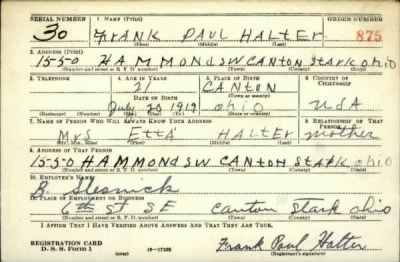 SERIAL NUMBER 1. NAME (Print) ORDER NUMBER
30 FRANK PAUL HALTER 875
(First) (Middle) (Last)
2. ADDRESS (Print)
1550 HAMMOND SW CANTON STARK Ohio
(Number and street or R. F. D. number) (Town) (County) (State)
3. TELEPHONE 4. AGE IN YEARS 5. PLACE OF BIRTH 6. COUNTRY OF CITIZENSHIP
21 CANTON
DATE OF BIRTH (Town or county)
July 20 1919 Ohio USA
(Exchange) (Number) (Mo.) (Day) (Yr.) (State or country)
7. NAME OF PERSON WHO WILL ALWAYS KNOW YOUR ADDRESS 8. RELATIONSHIP OF THAT PERSON
Mrs ETTA HALTER mother
(Mr., Mrs., Miss) (First) (Middle) (Last)
9. ADDRESS OF THAT PERSON
1550 HAMMOND SW CANTON STARK Ohio
(Number and street or R. F. D. number) (Town) (County) (State)
10. EMPLOYER'S NAME
B. Slesnick
11. PLACE OF EMPLOYMENT OR BUSINESS
6th ST SE Canton Stark Ohio
(Number and street or R. F. D. number) (Town) (County) (State)
I AFFIRM THAT I HAVE VERIFIED ABOVE ANSWERS AND THAT THEY ARE TRUE.
REGISTRATION CARD
D. S. S. Form 1 16-17105 Frank Paul Halter
(Registrant's signature)